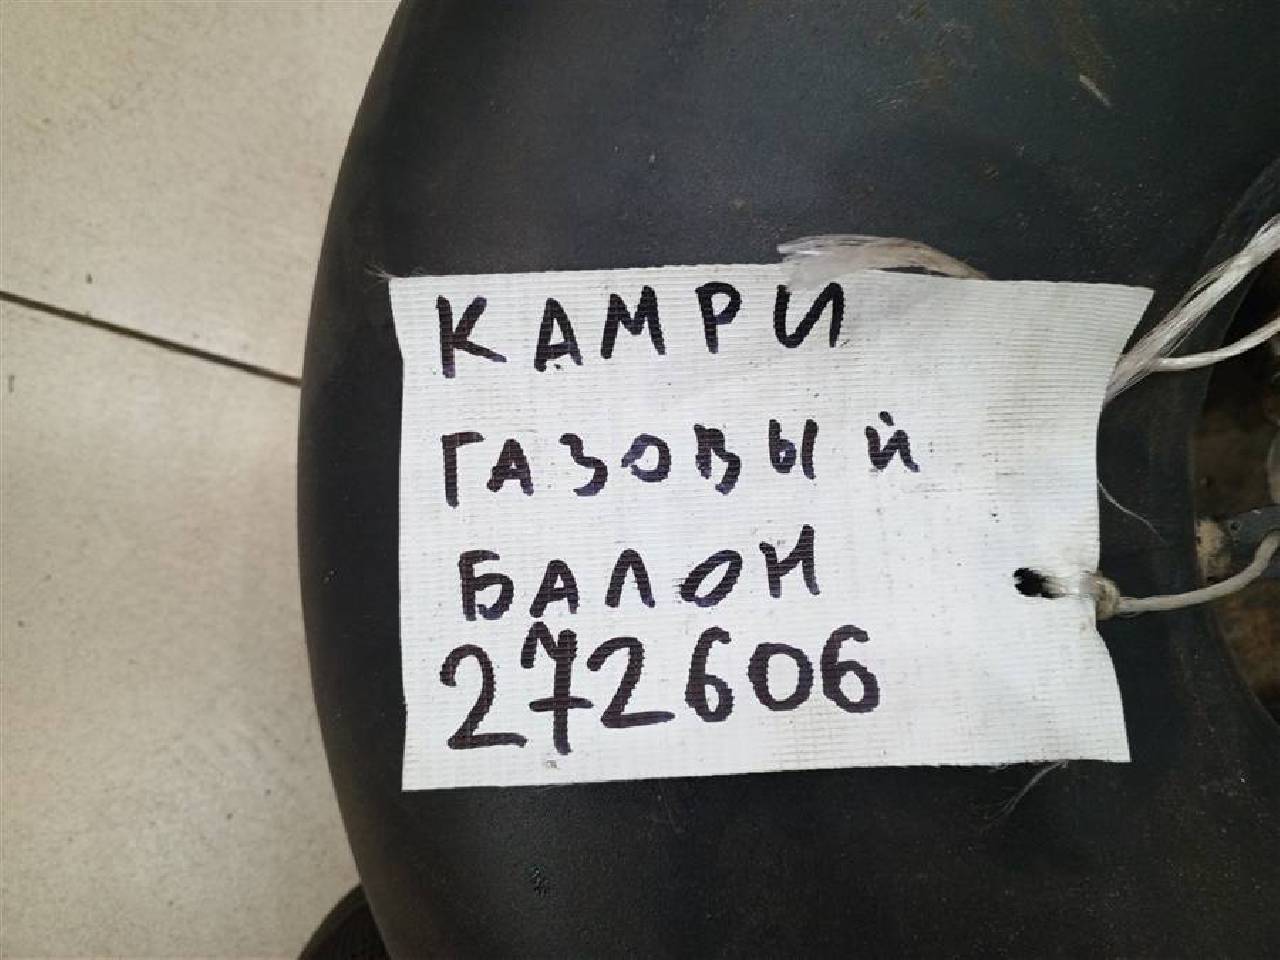 КАМРИ
ГАЗОВЫЙ
БАЛОН
272606